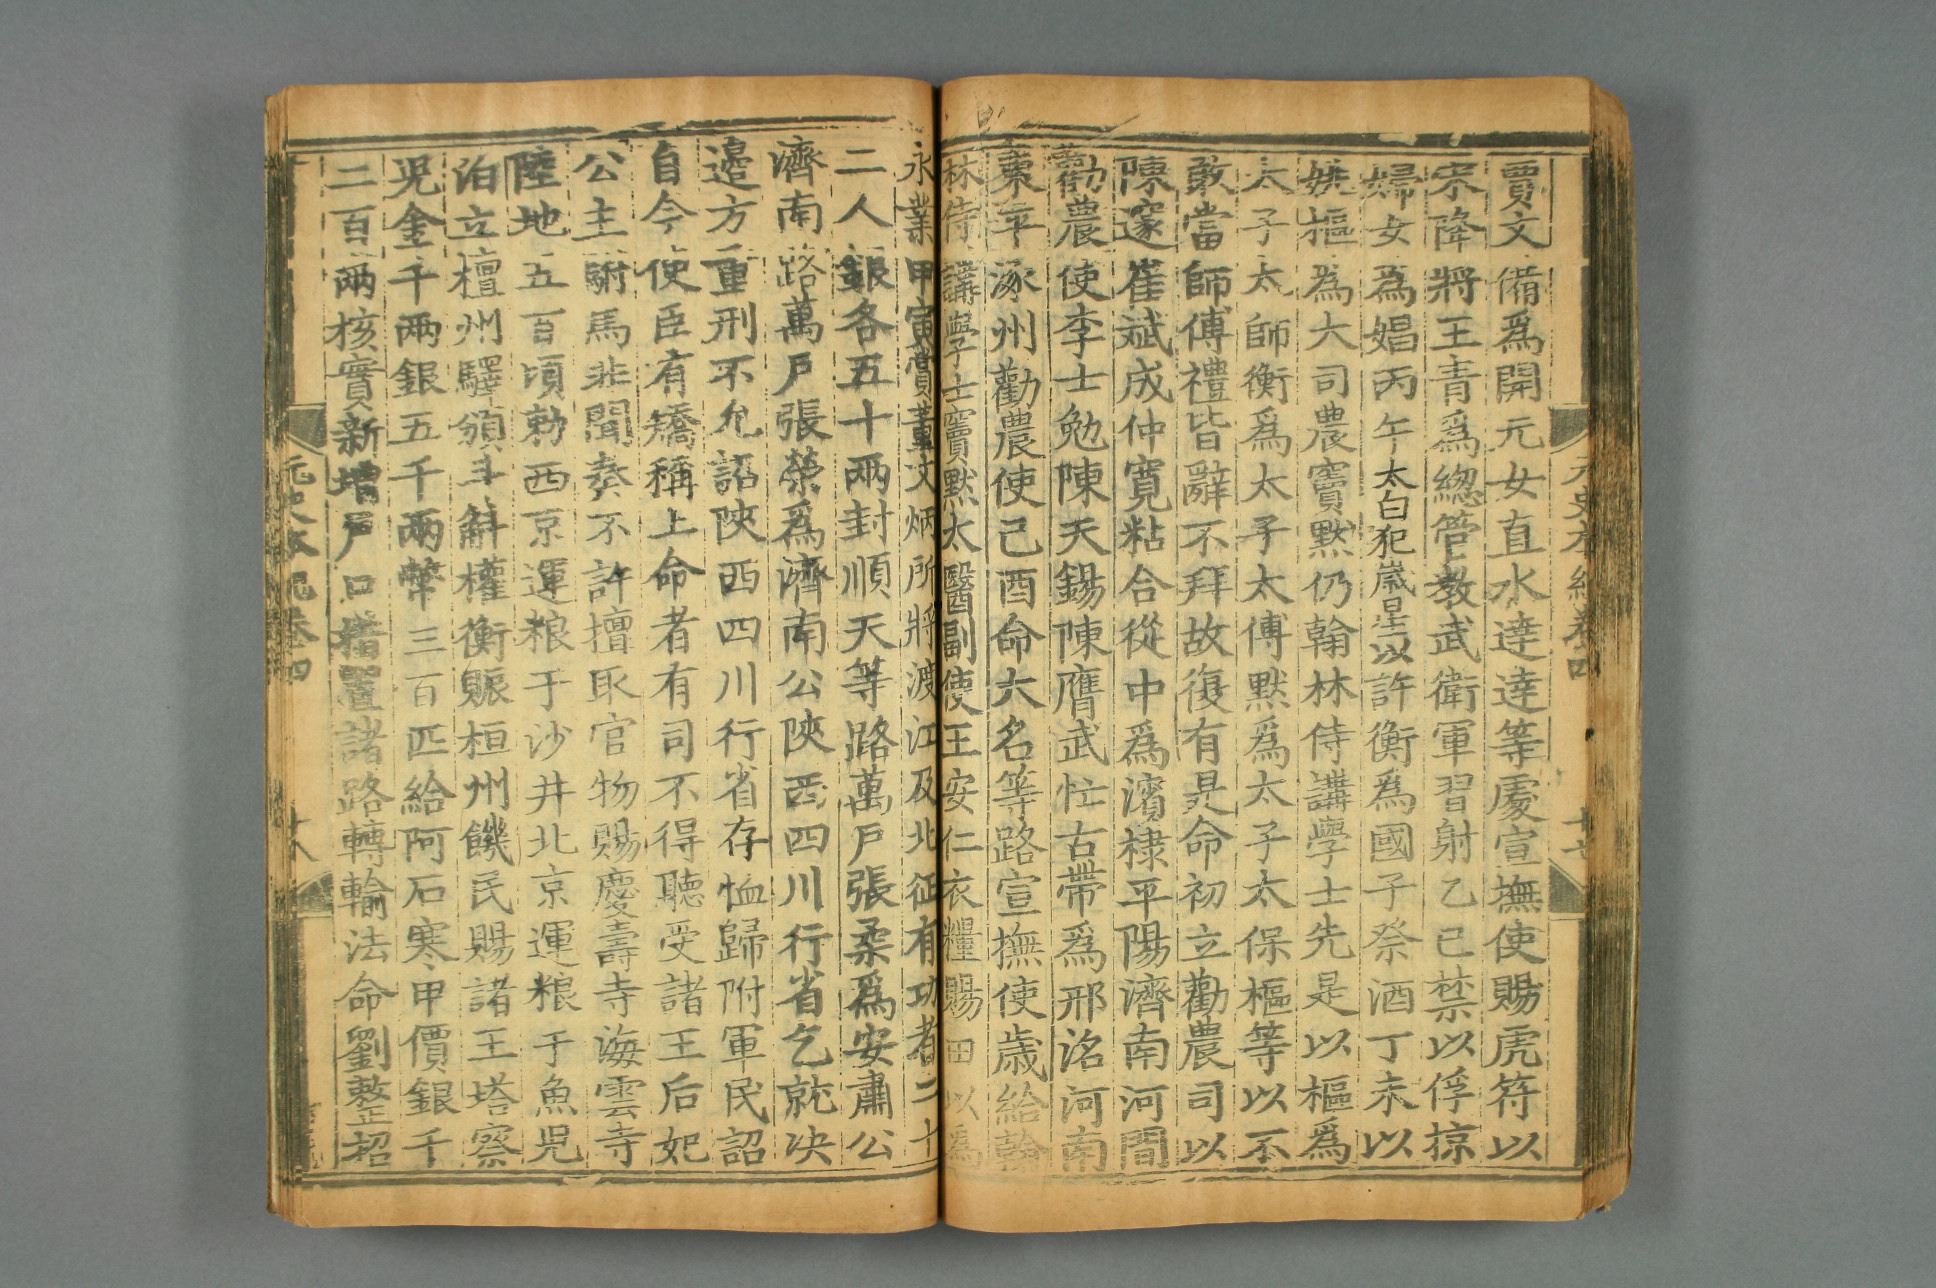 賈文備爲開元女直水達達等處宣撫使賜虎符以
宋降將王青爲緫管教武衛軍習射乙巳禁以俘掠
婦女爲娼丙午太白犯歲星以許衡爲國子祭酒丁未以
姚樞為大司農竇默仍翰林侍講學士先是以樞爲
太子太師衡爲太子太傅默爲太子太保樞等以不
敢當師傅禮皆辭不拜故復有是命初立勸農司以
陳邃崔斌成仲寬粘合從中爲濱棣平陽濟南河間
勸農使李士勉陳天錫陳膺武忙古帶爲邢洺河南
東平涿州勸農使己酉命大名等路宣撫使歲給翰
林侍講學士竇默太醫副使王安仁衣糧賜田以為
永業甲寅賞董文炳所將渡江及北征有功者二十
二人銀各五十兩封順天等路萬戶張柔爲安肅公
濟南路萬戶張榮爲濟南公陝西四川行省乞就决
邊方重刑不允詔陝西四川行省存恤歸附軍民詔
自今使臣有矯稱上命者有司不得聽受諸王后妃
公主駙馬非聞奏不許擅取官物賜慶壽寺海雲寺
陸地五百頃勑西京運粮于沙井北京運粮于魚兒
泊立檀州驛頒斗斛權衡賑桓州饑民賜諸王塔察
兒金千兩銀五千兩幣三百匹給阿石寒甲價銀千
二百兩核實新增戶口措置諸路轉輸法命劉整招
元史本紀卷四 十七
元史本紀卷四 十八